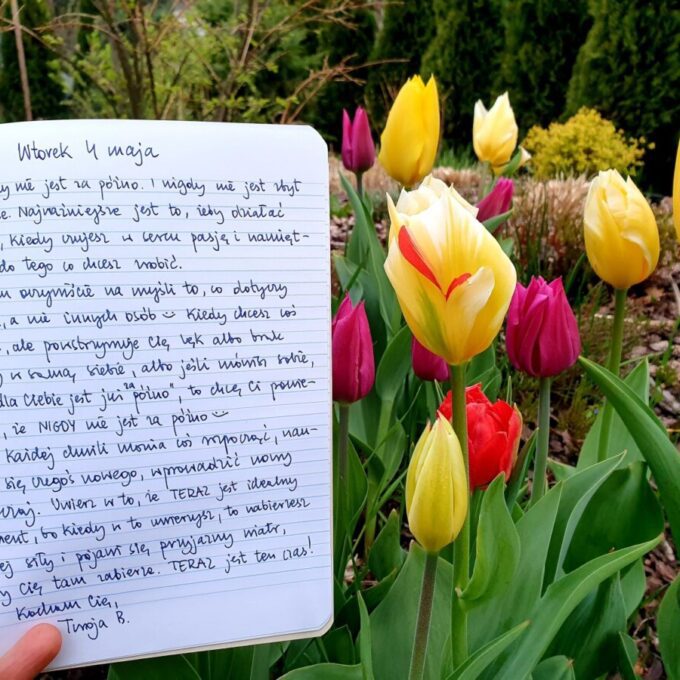 Wtorek 4 maja
nie jest za późno. I nigdy nie jest zbyt
Najważniejsze jest to, żeby działać
, kiedy czujesz w sercu pasję i namięt-
do tego co chcesz zrobić.
oczywiście na myśli to, co dotyczy
, a nie innych osób Kiedy chcesz coś
, ale powstrzymuje Cię lęk albo brak
w samą siebie, albo jeśli mówisz sobie,
dla Ciebie jest już "za późno", to chcę Ci powie-
, że NIGDY nie jest za późno
każdej chwili można coś rozpocząć, nau-
się czegoś nowego, wprowadzić nowy
Uwierz w to, że TERAZ jest idealny
ment, bo kiedy w to uwierzysz, to nabierzesz
siły i pojawi się przyjazny wiatr,
Cię tam zabierze. TERAZ jest ten czas!
Kocham Cię,
Twoja B.